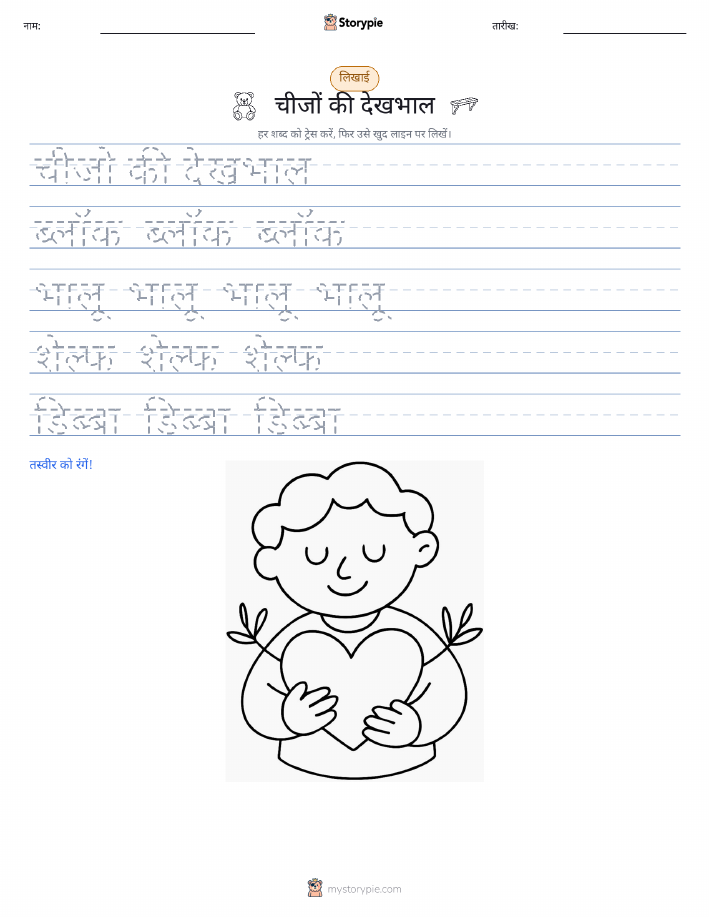 नाम:
Storypie
तारीख:
लिखाई
चीजों की देखभाल
हर शब्द को ट्रेस करें, फिर उसे खुद लाइन पर लिखें।
चीजो की देखभाल
ब्लॉक ब्लॉक ब्लॉक
भालू भालू भालू भालू
शेल्फ शेल्फ शेल्फ
डिब्बा डिब्बा डिब्बा
तस्वीर को रंगें!
mystorypie.com